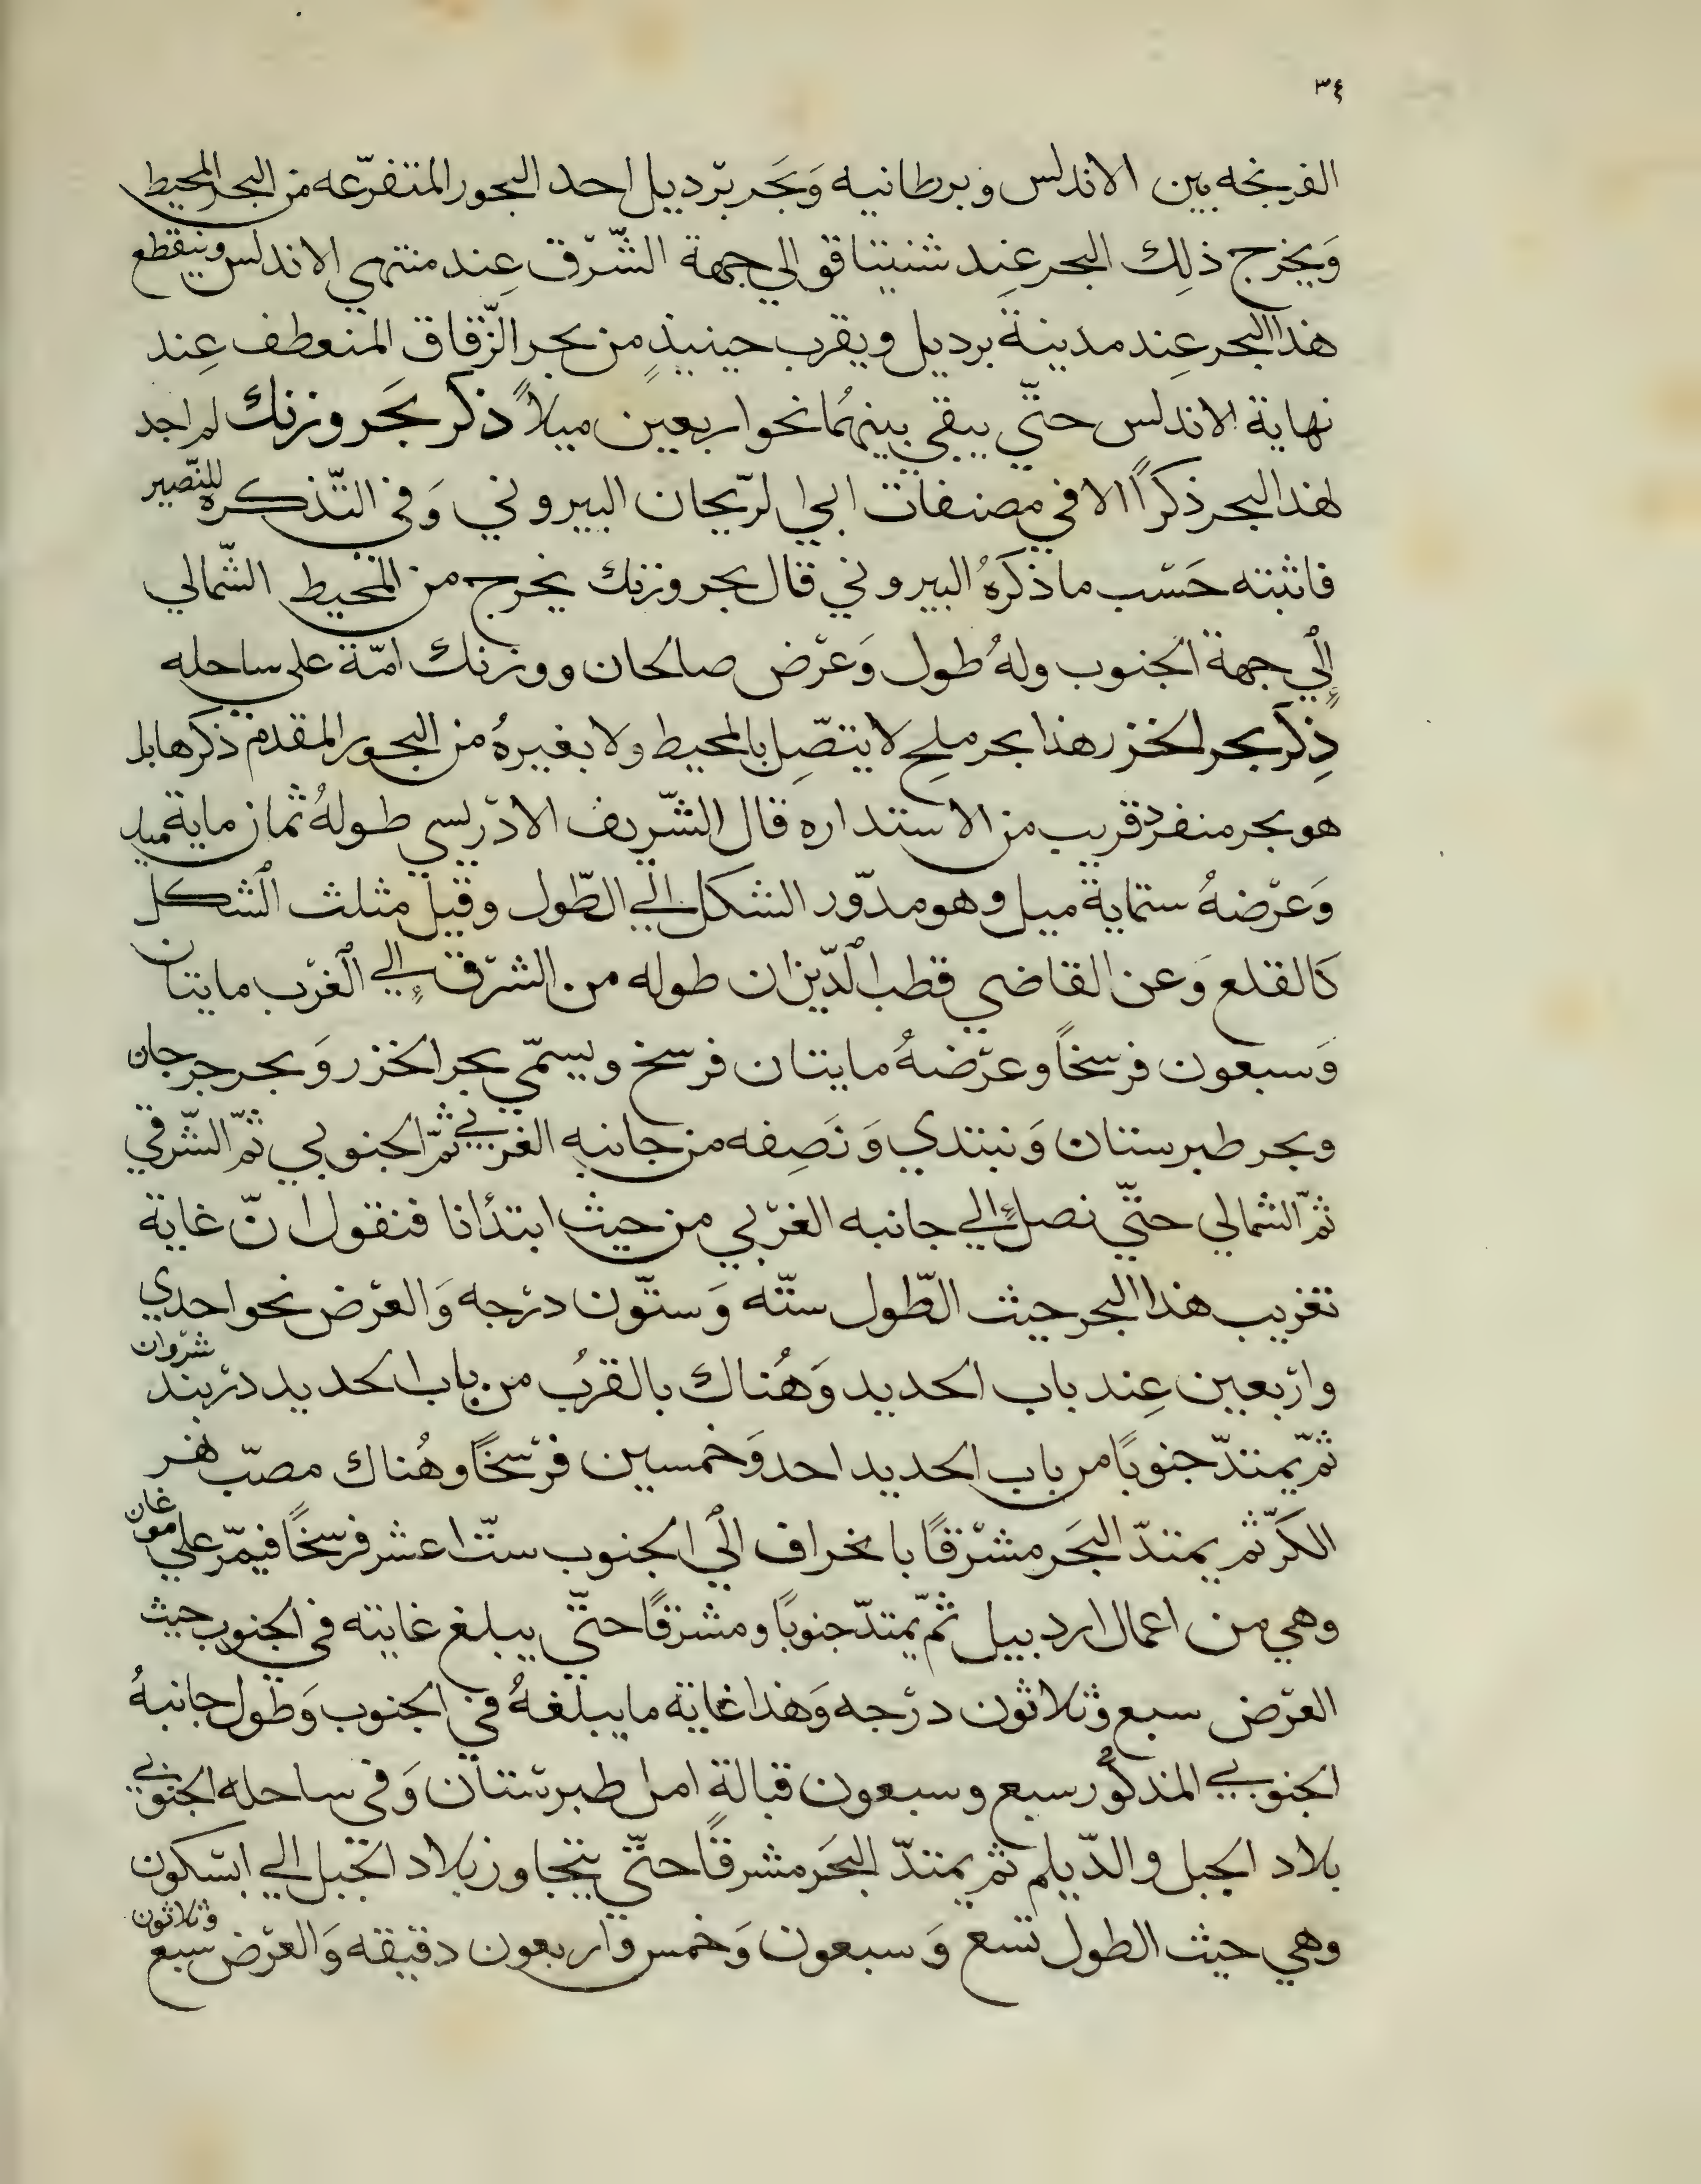 ٣٤
الفرنجه بين الاندلس وبرطانيه وَبحَر برّديل احد البحور المتفرّعه من البحر المحيط
وَيخرج ذلِك البحر عِند شنيتاقو الي جهة الشّرّق عِند منتهي الاندلس وينقطع
هذا البحر عِند مدينة برديل ويقرب حينيذٍ من بحر الزّقاق المنعطف عِند
نهاية الاندلس حتّي يبقي بينهُما نحو اربعين ميلاً ذكر بحَر ورنك لم اجد
لهذا البحر ذكراً الا في مصنفات ابي الرّيحان البيروني وَفي التّذكره للنّصير
فاثبته حَسّب ما ذكَرهُ البيروني قال بحر ورنك يخرج من المحيط الشّمالي
إلي جهة الجنوب ولهُ طول وَعرّض صالحان وورنك امّة علي ساحله
ذِكر بحر الخزر هذا بحر ملح لا يتصِّل بالمحيط ولا بغيرهُ من البحور المقدم ذكرها بل
هو بحر منفرد قريب من الاستداره قال الشّريف الادرّيسي طولهُ ثمان ماية ميل
وَعرّضهُ ستماية ميل وهو مدوّر الشكل الي الطّول وقيل مثلث الشكل
كَالقلع وَعن القاضي قطب الدّين ان طوله من الشرّق إلي الغرّب مايتان
وَسبعون فرسخاً وعرّضهُ مايتان فرسخ ويسمّي بحر الخزر وَبحر جرجان
وبحر طبرستان وَنبتدي وَنَصِفه من جانبه الغربي ثمّ الجنوبي ثمّ الشّرقي
ثمّ الشمالي حتّي نصل إلي جانبه الغرّبي من حيث ابتدأنا فنقول انّ غاية
تغريب هذا البحر حيث الطّول ستّه وَستّون درّجه وَالعرّض نحو احدي
وارّبعين عِند باب الحديد وَهُناك بالقربُ من باب الحديد درّبند شرّوان
ثمّ يمتدّ جنوبًا من باب الحديد احد وَخمسين فرّسخًا وهُناك مصبّ نهر
الكَرّ ثم يمتدّ البحَر مشرّقًا بانحراف الي الجنوب ستّ اعشر فرسّخًا فيمّر علي موغان
وهي من اعمال اردبيل ثمّ يمتدّ جنوبًا ومشرقًا حتّي يبلغ غايته في الجنوب حيث
العرّض سبع وثلاثون درّجه وَهذا غاية ما يبلغهُ في الجنوب وَطول جانبهُ
الجنوبي المذكوُر سبع وسبعون قبالةِ امل طبرسّتان وَفي ساحله الجنوبي
بلاد الجبل والدّيلم ثم يمتدّ البحَر مشرقًا حتّي يتجاوز بلاد الجبل الي ابسّكون
وهي حيث الطول تسع وَسبعون وَخمس واربعون دقيقه وَالعرّض سبع وثلاثون